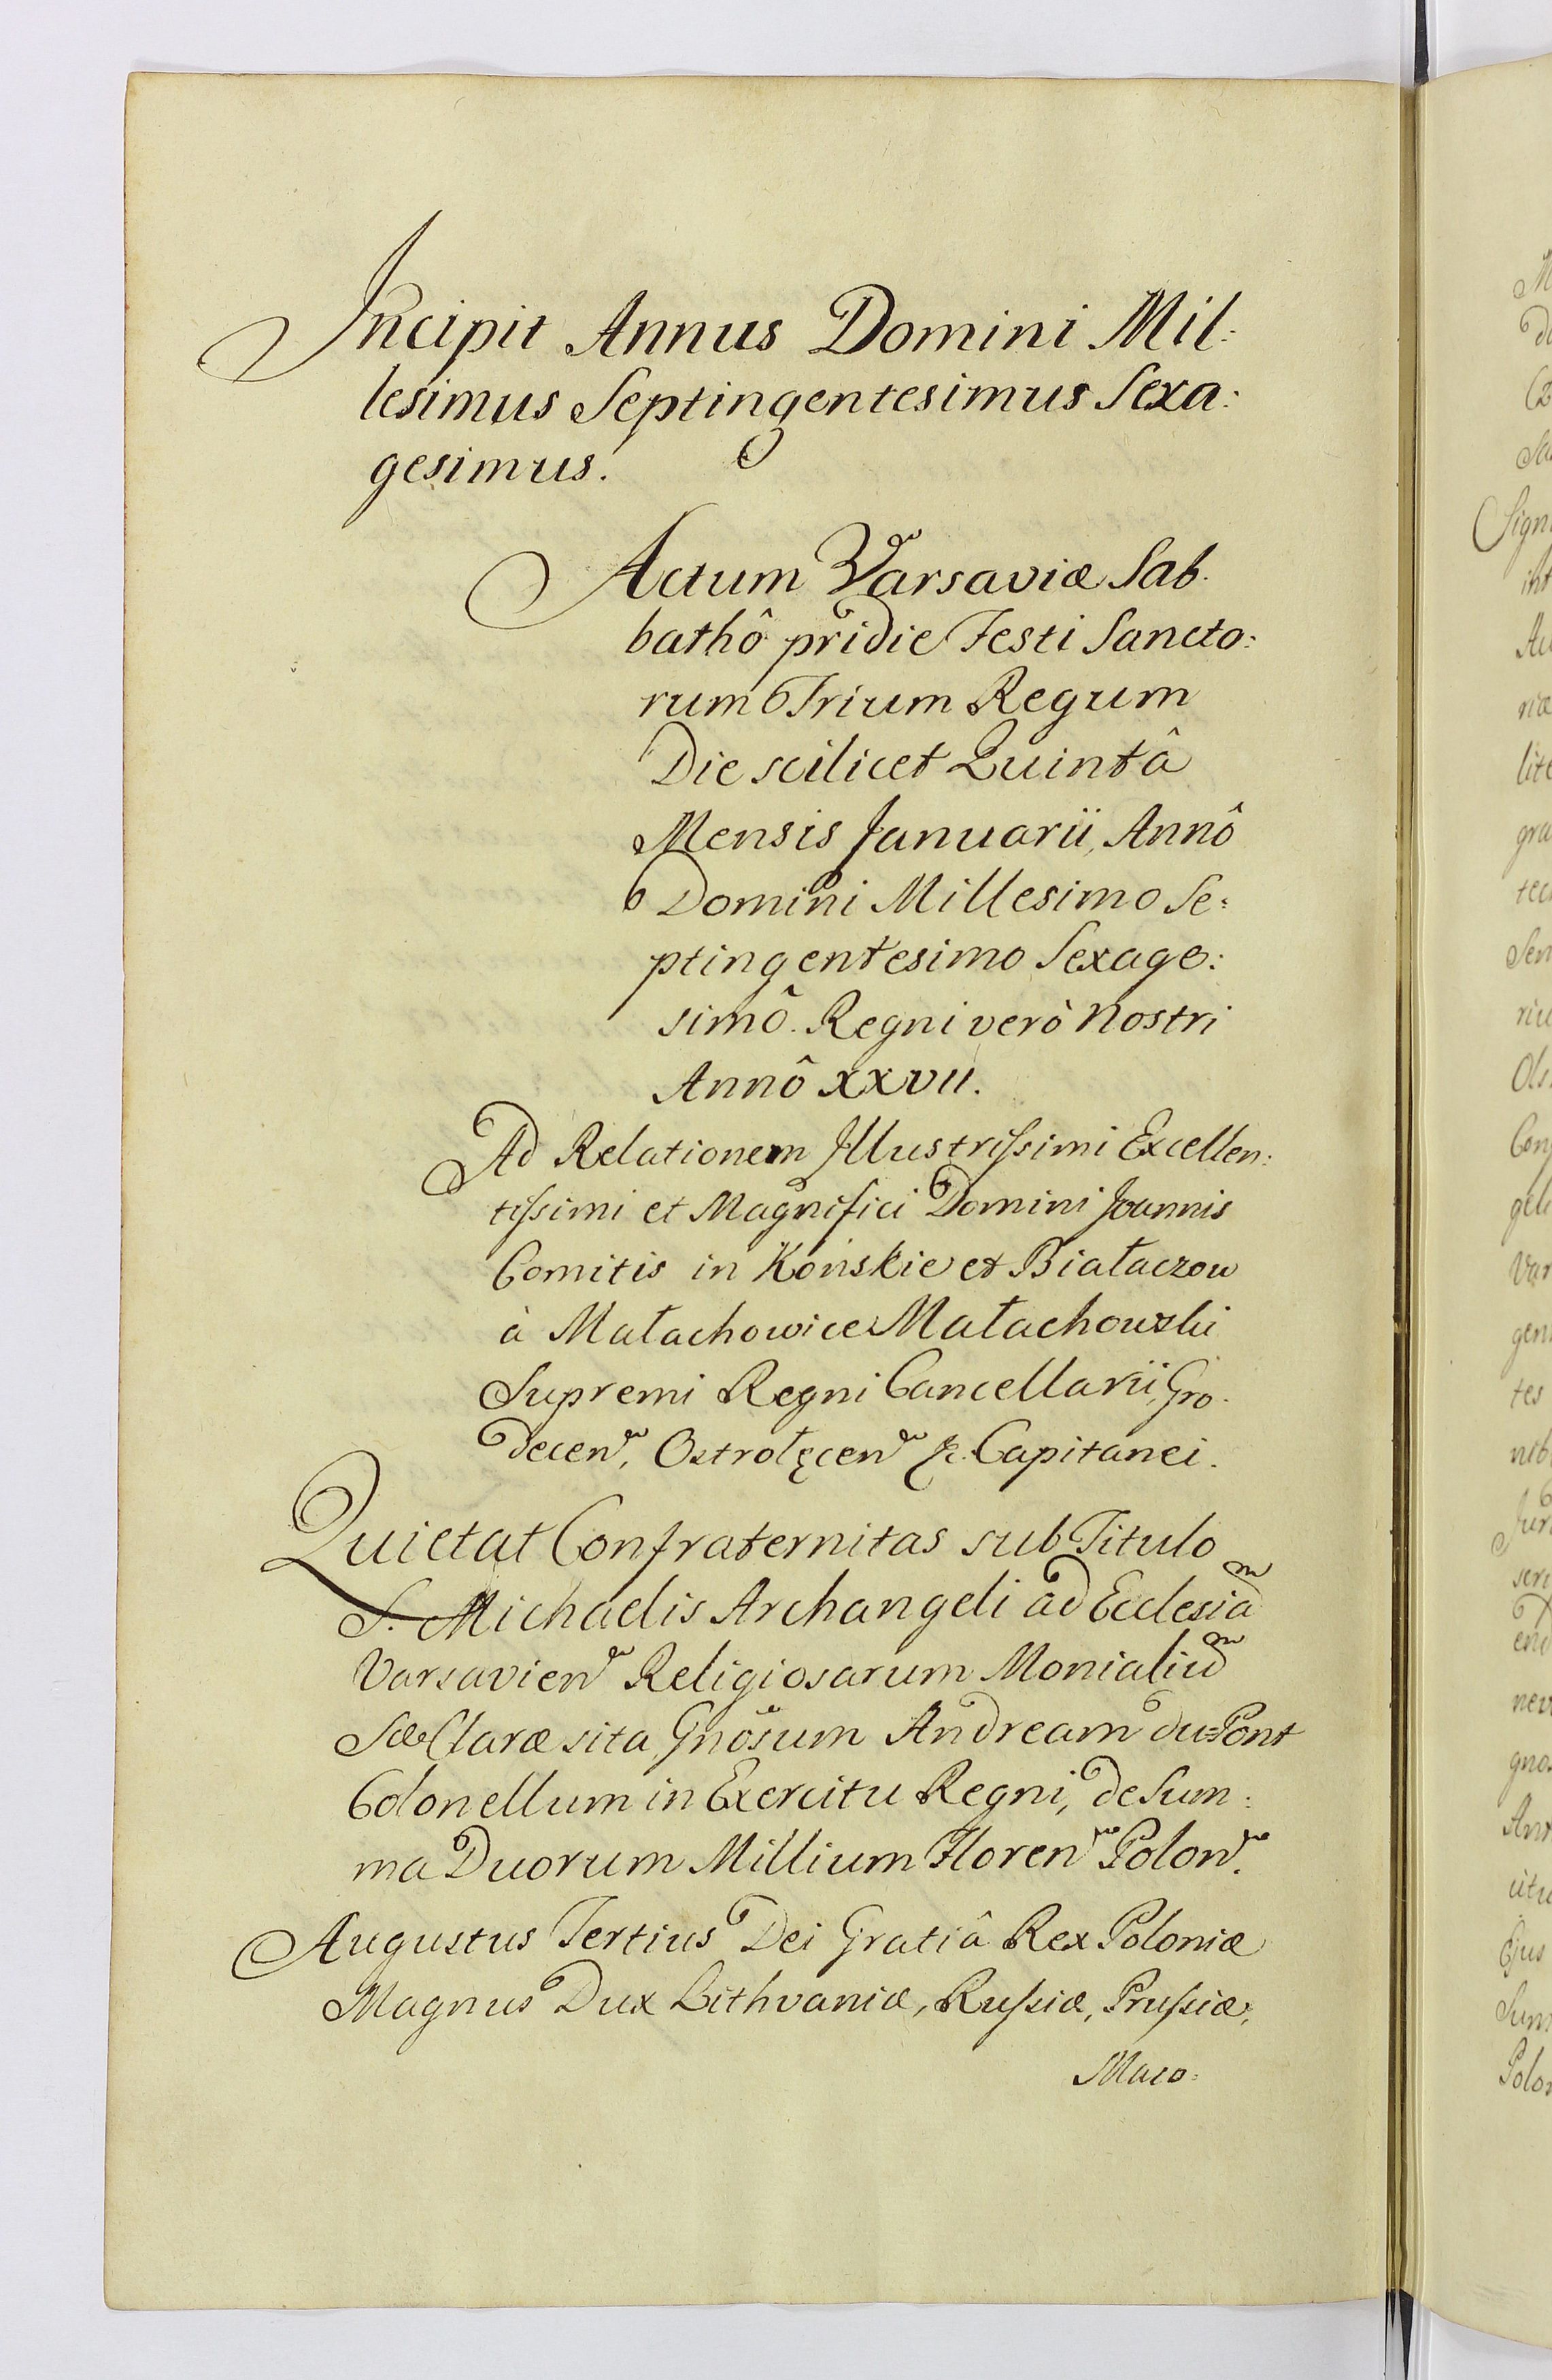 Incipit Annus Domini Mil:
lesimus Septingentesimus Sexa:
gesimus.
Actum Varsaviæ Sab.
bathô pridie Festi Sancto:
rum Trium Regum
Die scilicet Quintâ
Mensis Januarii, Annô
Domini Millesimo Se:
ptingentesimo Sexage:
simô. Regni verò nostri
Annô XXVII.
Ad Relationem Illustrissimi Excellen:
tissimi et Magnifici Domini Joannis
Comitis in Końskie et Białaczow
à Małachowice Małachowski
Supremi Regni Cancellarii, Gro.
decen, Ostrołęcen &c. Capitanei.
Quietat Confraternitas sub Titulo
S. Michaelis Archangeli ad Ecclesiam
Varsavien Religiosarum Monialium
Sæ Claræ sita, Gnosum Andream du=Pont
Colonellum in Exercitu Regni, de Sum:
ma Duorum Millium Floren Polon.
Augustus Tertius Dei Gratiâ Rex Poloniæ
Magnus Dux Lithvaniæ, Russiæ, Prussiæ,
Maso: